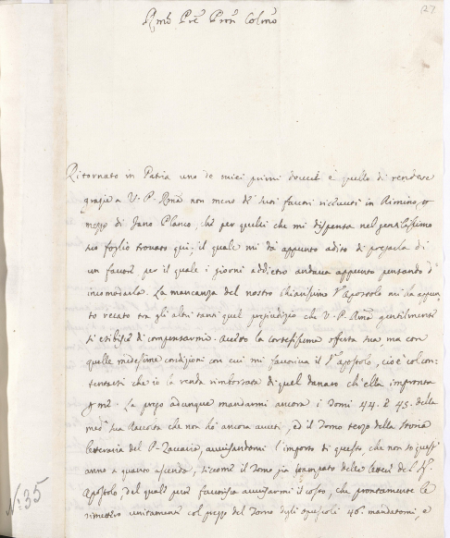 127
Rmo Pre Prõn Colmo
Ritornato in Patria uno de miei primi doveri è quello di rendere
grazie a V. P. Rma non meno de' suoi favori ricevuti in Rimino, per
mezzo di Jano Planco, che per quelli che mi dispensa nel gentilissimo
suo foglio trovato qui; il quale mi dà appunto adito di pregarla di
un favore per il quale i giorni addietro andava appunto pensando d'
incomodarla. La mancanza del nostro chiarissimo Sr Apostolo mi ha
recato tra gli altri tanti quel pregiudizio che V. P. Rma gentilmente
si esibisce di compensarmi. Accetto la cortesissima offerta sua ma con
quelle medesime condizioni con cui mi favoriva il Sr Apostolo, cioè col
contentarsi che io la renda rimborsata di quel danaro ch'ella impronta
La prego adunque mandarmi ancora i Tomi 44. e 45. della
sua Raccolta che non ho ancora avuti, ed il Tomo terzo della Storia
letteraria del P. Zaccaria, avvisandomi l'importo di questo, che non so quest'
anno a quanto ascenda, siccome il Tomo delle lettere del Sr
Apostolo, del quale pure favorisca avvisarmi il costo, che prontamente le
rimetterò unitamente col prezzo del Tomo degli opuscoli 46. mandatomi, e
N.º 35